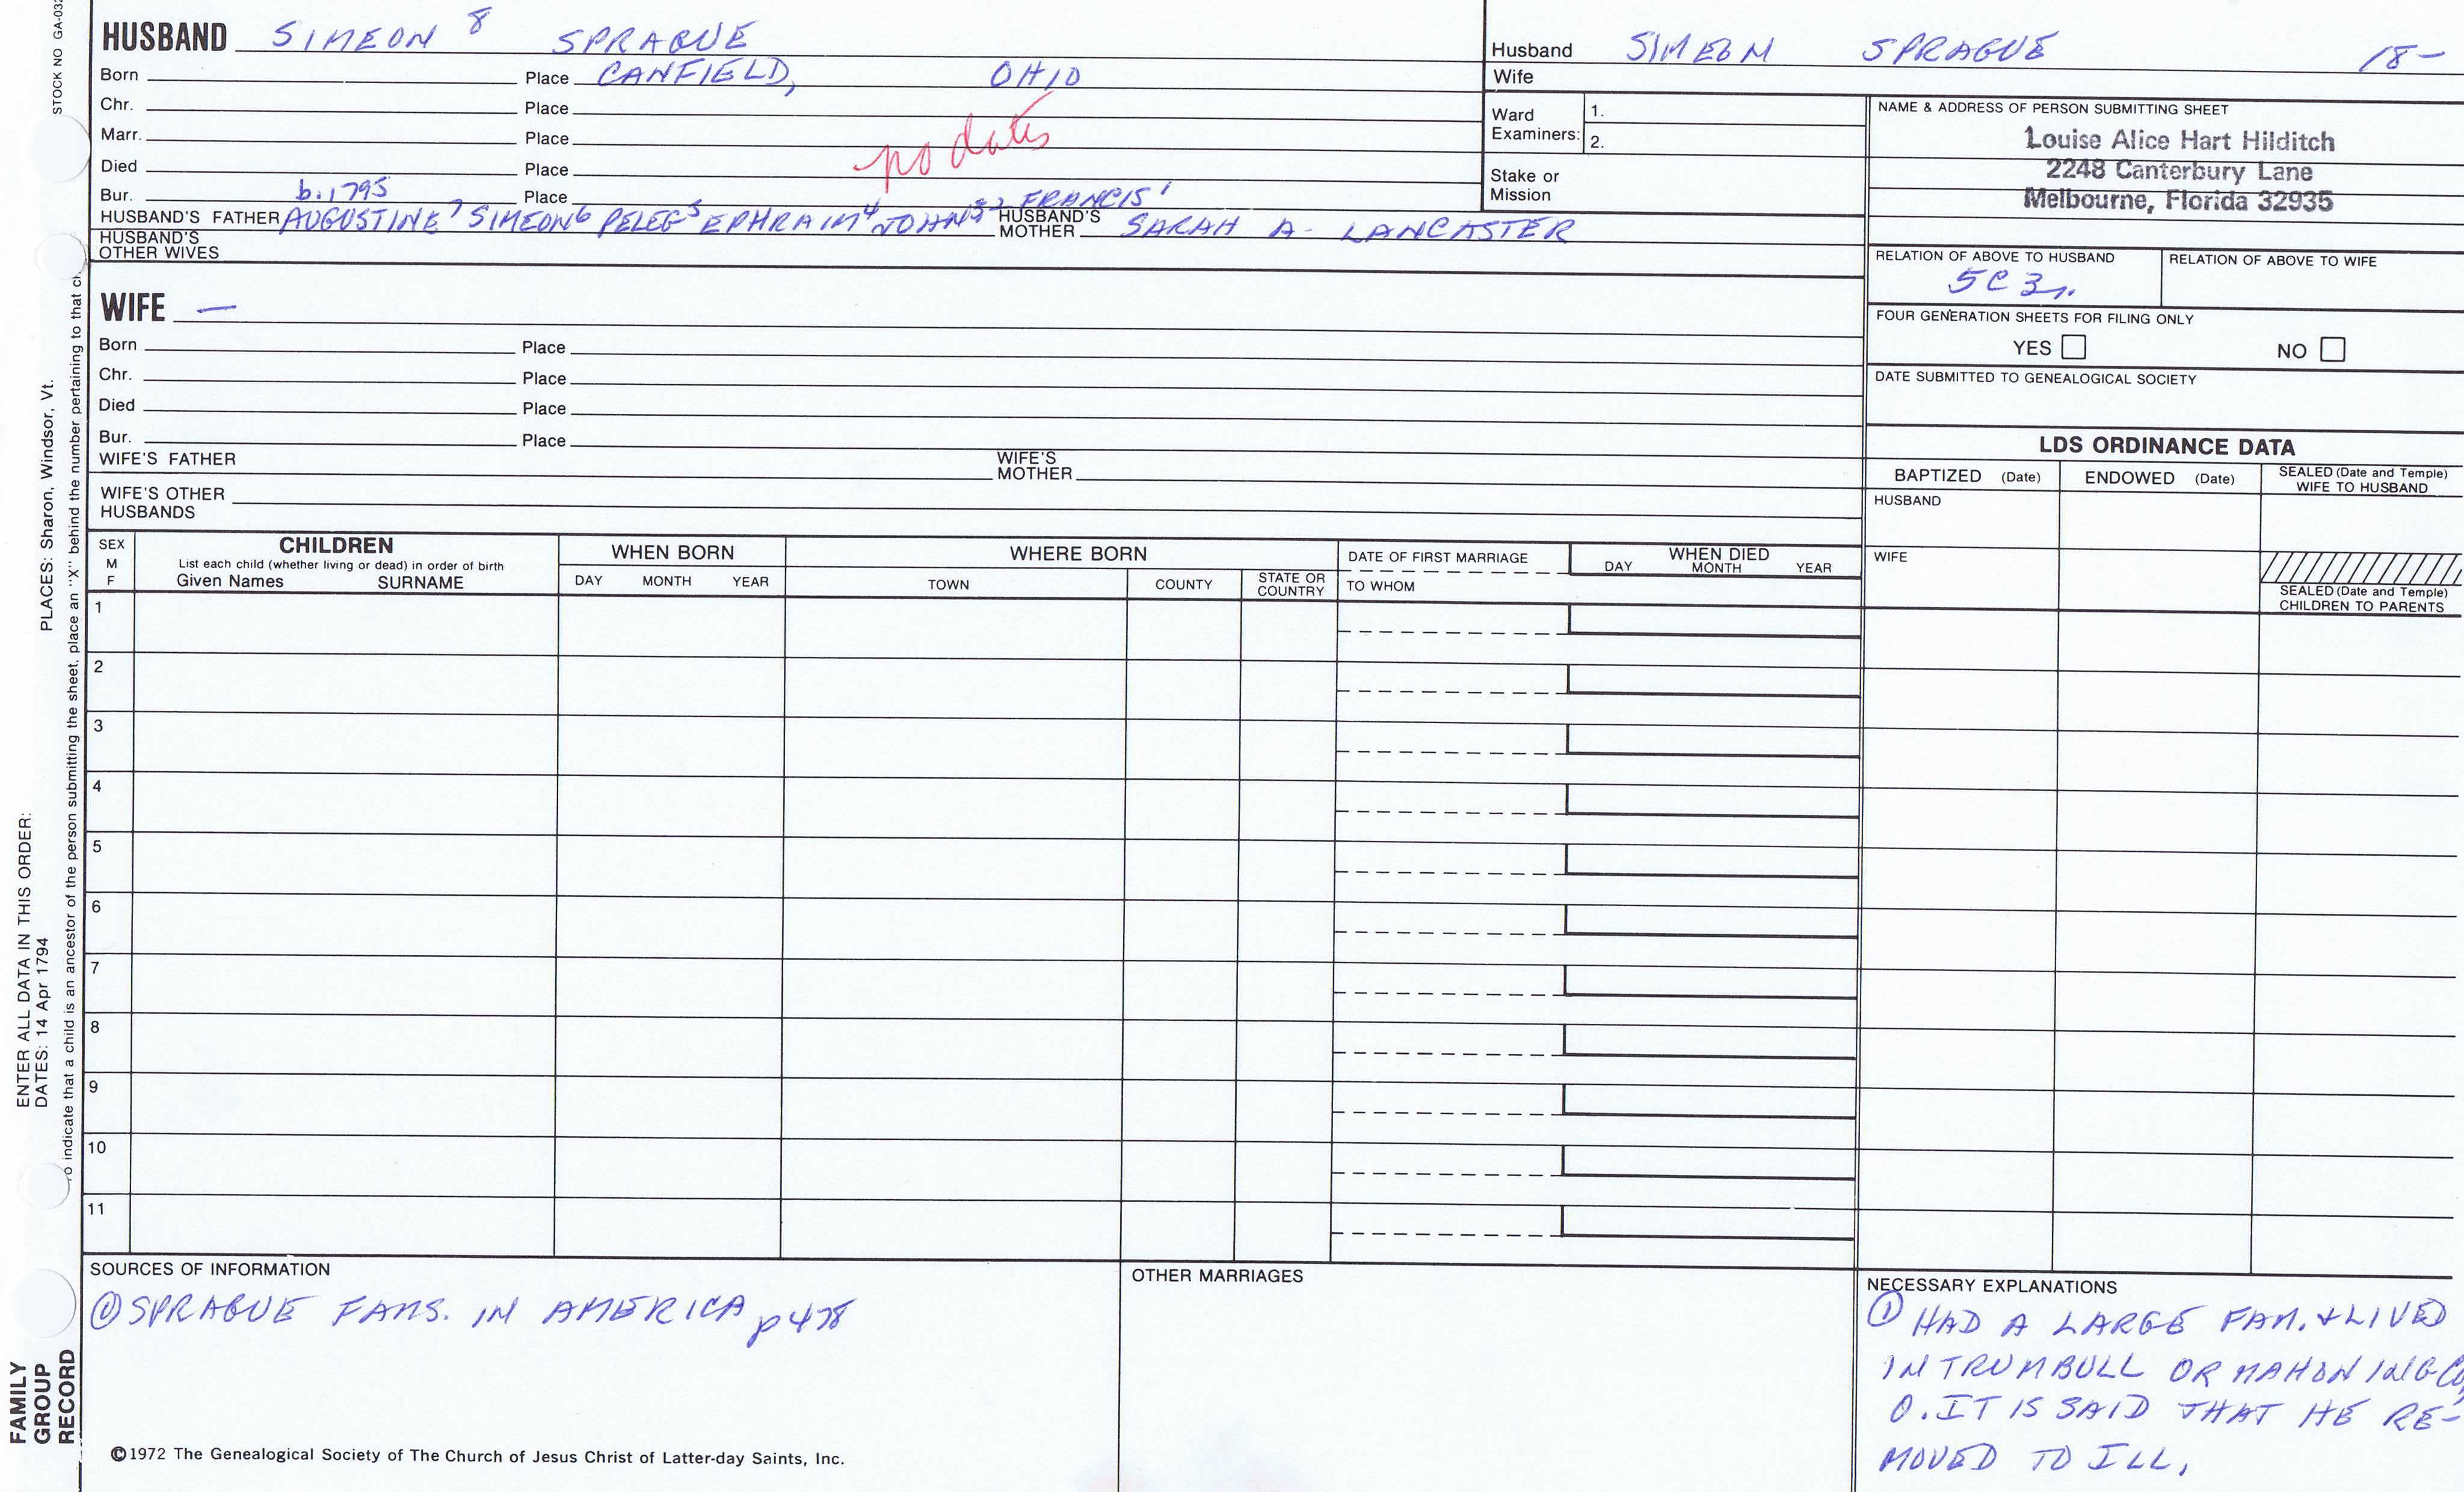 STOCK NO GA-032
HUSBAND SIMEON 8 SPRAGUE
Born Place CANFIELD, OHIO
Chr. Place
Marr. Place
no dates
Died Place
Bur. Place
b. 1795
HUSBAND'S FATHER AUGUSTINE 7 SIMEON 6 PELEG 5 EPHRAIM 4 JOHN 3 2 FRANCIS 1 HUSBAND'S MOTHER SARAH A. LANCASTER
HUSBAND'S OTHER WIVES
Husband SIMEON SPRAGUE 18-
Wife
Ward Examiners: 1.
2.
Stake or Mission
NAME & ADDRESS OF PERSON SUBMITTING SHEET
Louise Alice Hart Hilditch
2248 Canterbury Lane
Melbourne, Florida 32935
RELATION OF ABOVE TO HUSBAND RELATION OF ABOVE TO WIFE
5C 3r.
FOUR GENERATION SHEETS FOR FILING ONLY
YES NO
DATE SUBMITTED TO GENEALOGICAL SOCIETY
WIFE —
Born Place
Chr. Place
Died Place
Bur. Place
WIFE'S FATHER WIFE'S MOTHER
WIFE'S OTHER HUSBANDS
LDS ORDINANCE DATA
BAPTIZED (Date) ENDOWED (Date) SEALED (Date and Temple) WIFE TO HUSBAND
HUSBAND
WIFE
SEALED (Date and Temple) CHILDREN TO PARENTS
SEX M F
CHILDREN
List each child (whether living or dead) in order of birth
Given Names SURNAME
WHEN BORN
DAY MONTH YEAR
WHERE BORN
TOWN COUNTY STATE OR COUNTRY
DATE OF FIRST MARRIAGE
TO WHOM
WHEN DIED
DAY MONTH YEAR
1
2
3
4
5
6
7
8
9
10
11
SOURCES OF INFORMATION
① SPRAGUE FAMS. IN AMERICA p 478
OTHER MARRIAGES
NECESSARY EXPLANATIONS
① HAD A LARGE FAM. & LIVED
IN TRUMBULL OR MAHONING CO,
O. IT IS SAID THAT HE RE-
MOVED TO ILL,
©1972 The Genealogical Society of The Church of Jesus Christ of Latter-day Saints, Inc.
ENTER ALL DATA IN THIS ORDER:
DATES: 14 Apr 1794 PLACES: Sharon, Windsor, Vt.
To indicate that a child is an ancestor of the person submitting the sheet, place an "X" behind the number pertaining to that ch
FAMILY
GROUP
RECORD